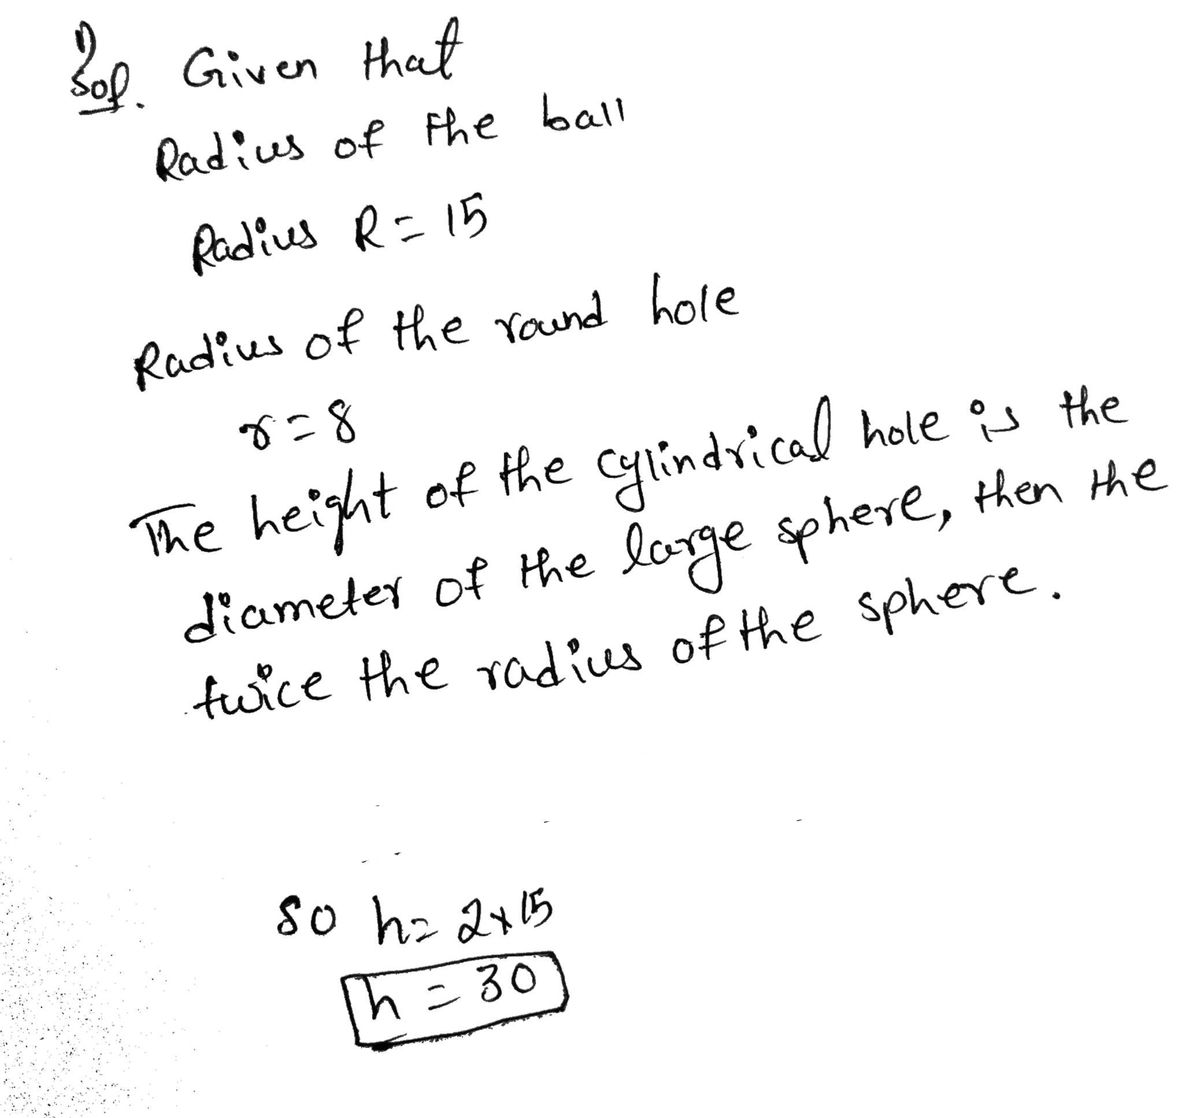 Sol. Given that
Radius of the ball
Radius R = 15
Radius of the round hole
r = 8
The height of the cylindrical hole is the
diameter of the large sphere, then the
twice the radius of the sphere.
So h = 2×15
h = 30